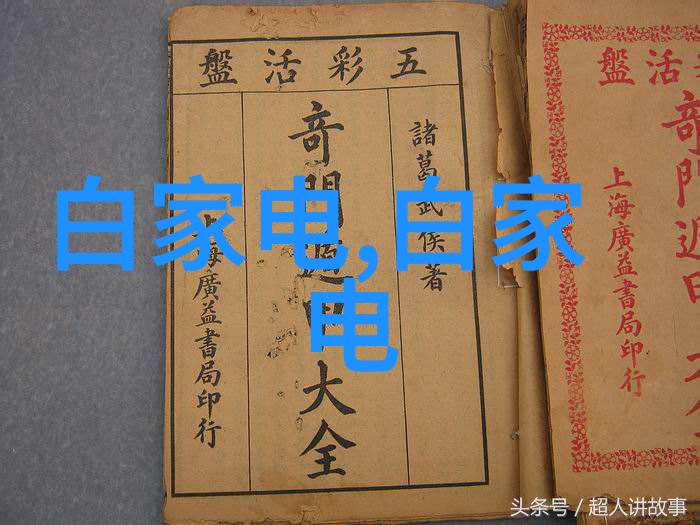 五彩活盤
諸葛武侯著
奇門遁甲大全
上海廣益書局印行
活盤
奇門遁甲
上海廣益書局印行
白家电,自家
电
头条号 / 超人讲故事